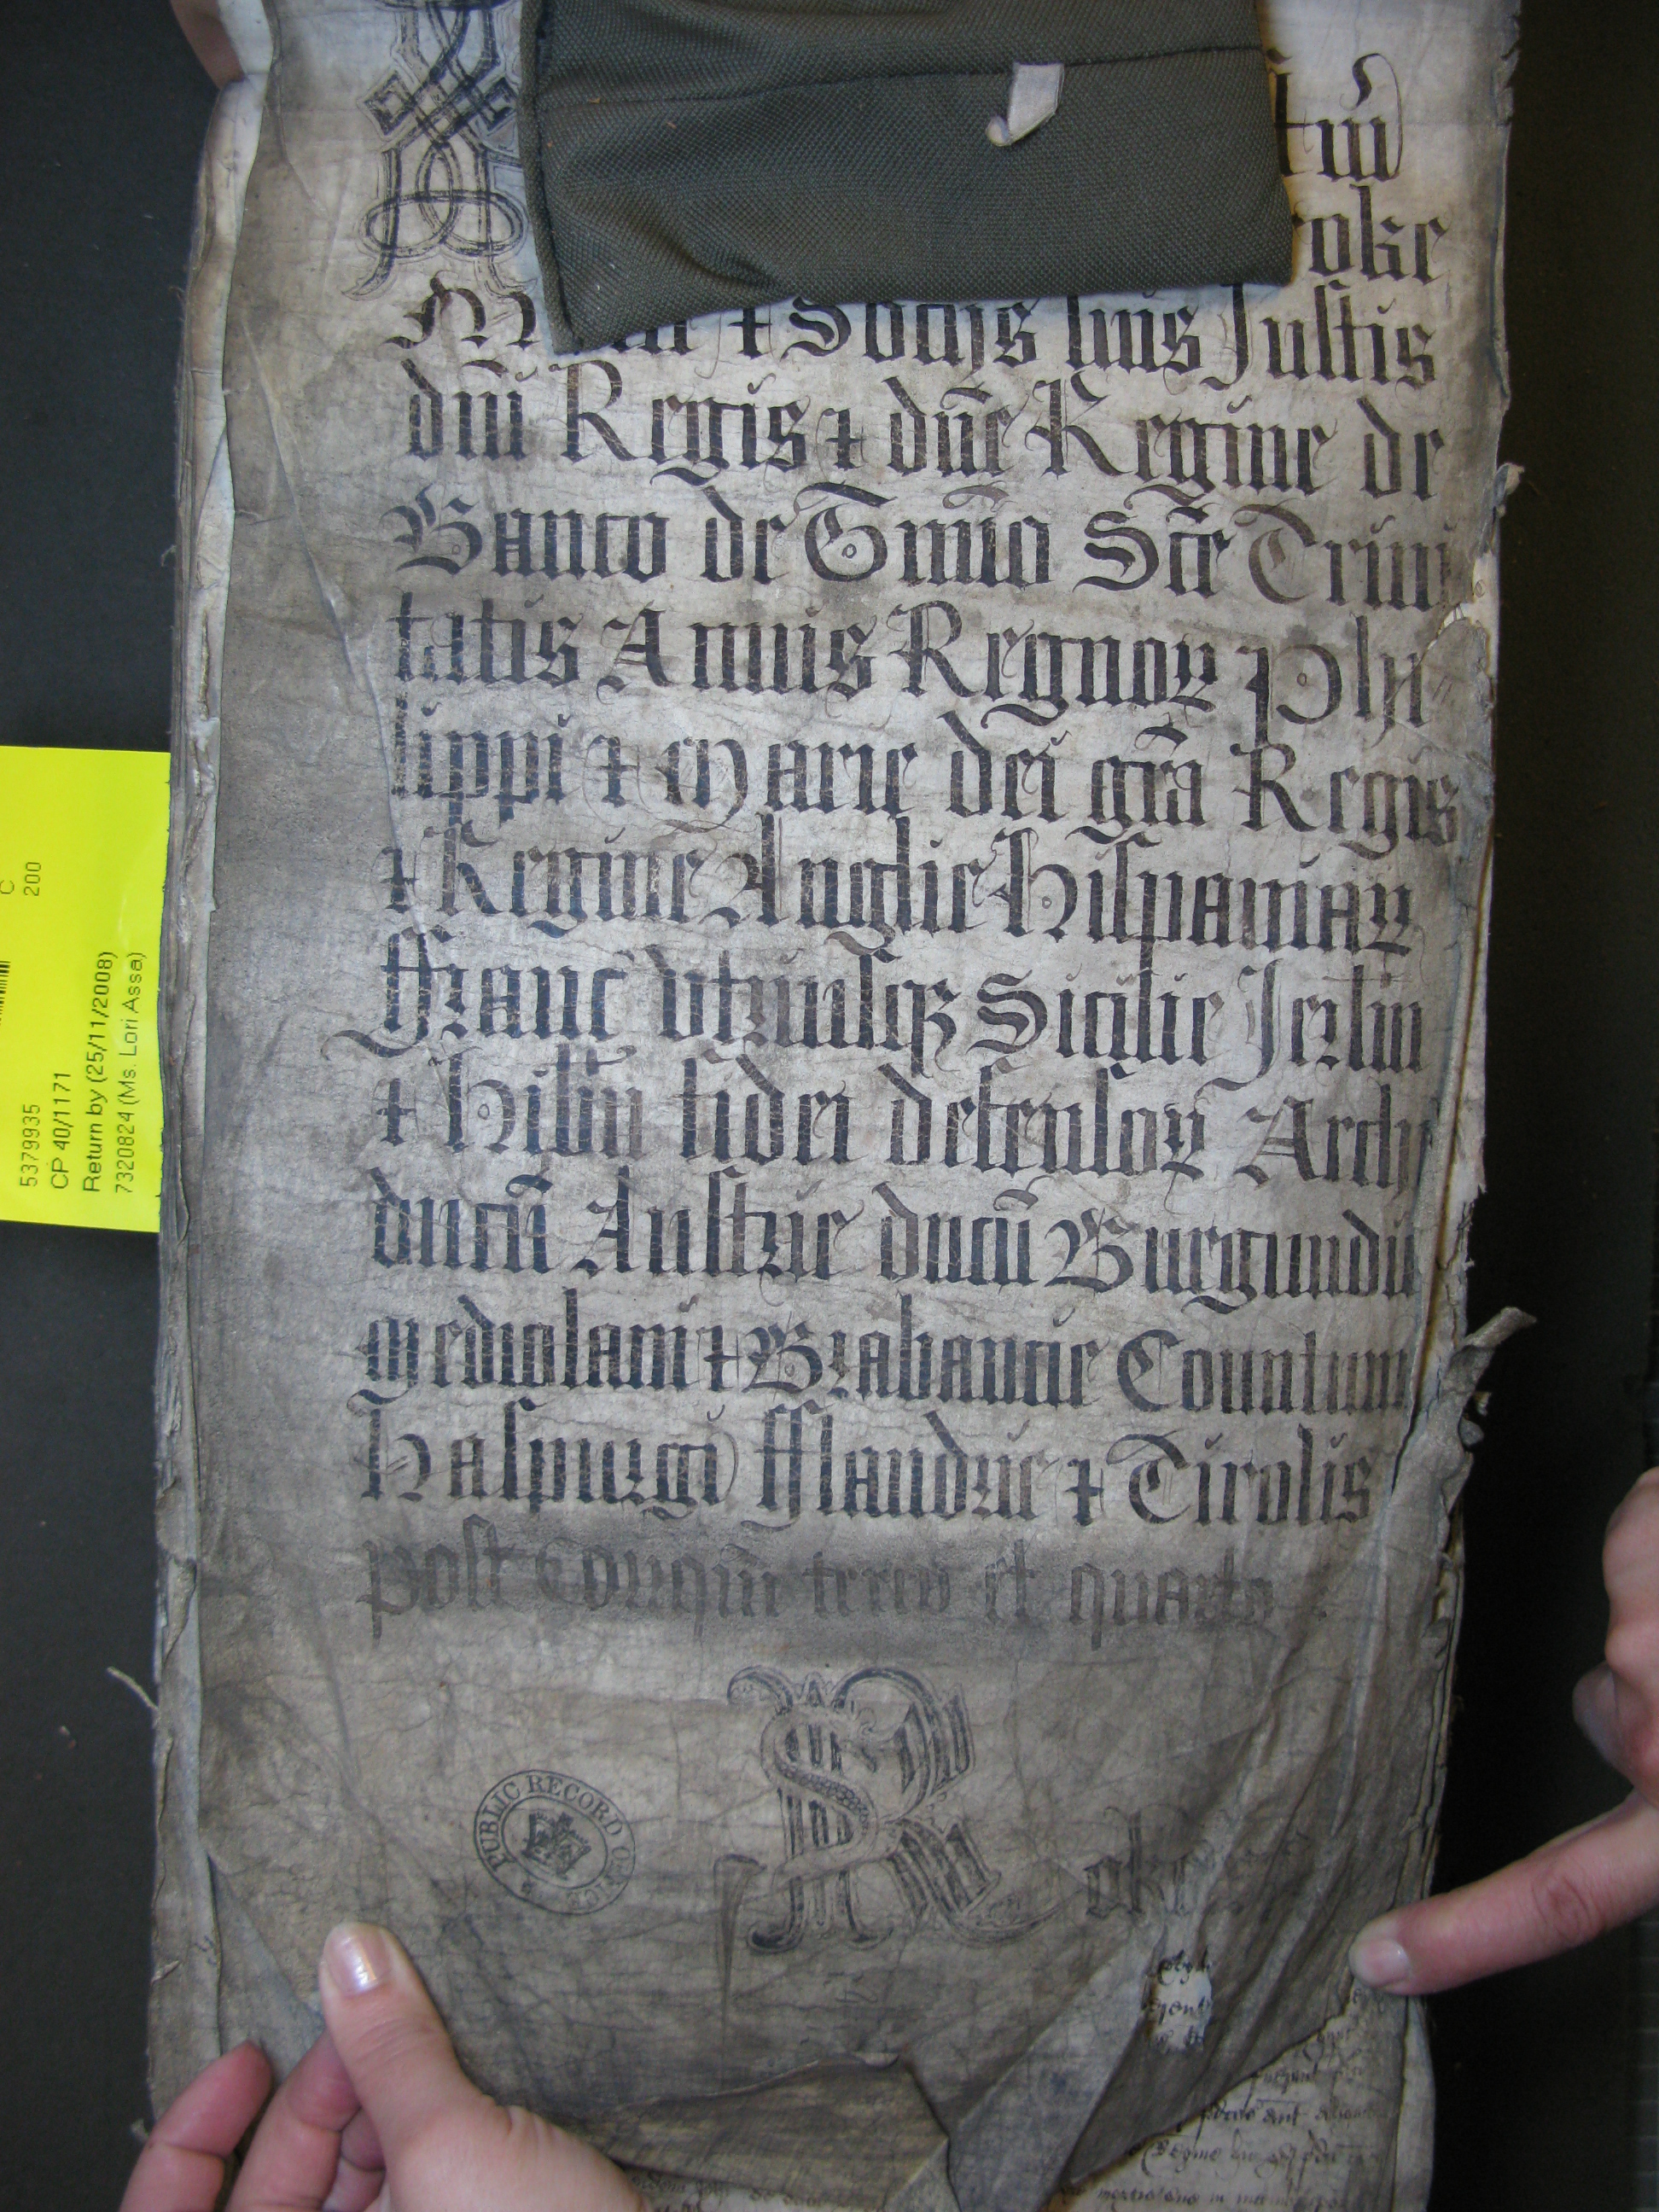 oke
M
& Socijs suis Justis
dñi Regis & dñe Regine de
Banco de Tmiõ Scẽ Trini
tatis Annis Regnoꝝ Phi
lippi & Marie dei grã Regis
& Regine Anglie Hispaniaꝝ
ffranc utriusqꝫ Sicilie Jerlm
& Hibñ fidei defensoꝝ Archi
ducũ Austrie ducũ Burgundii
Mediolani & Brabancie Comitum
Haspurgi fflandrie & Tirolis
post Conqm tercio et quarto
Roke
PUBLIC RECORD OFFICE
C
200
5379935
CP 40/1171
Return by (25/11/2008)
7320824 (Ms. Lori Assa)